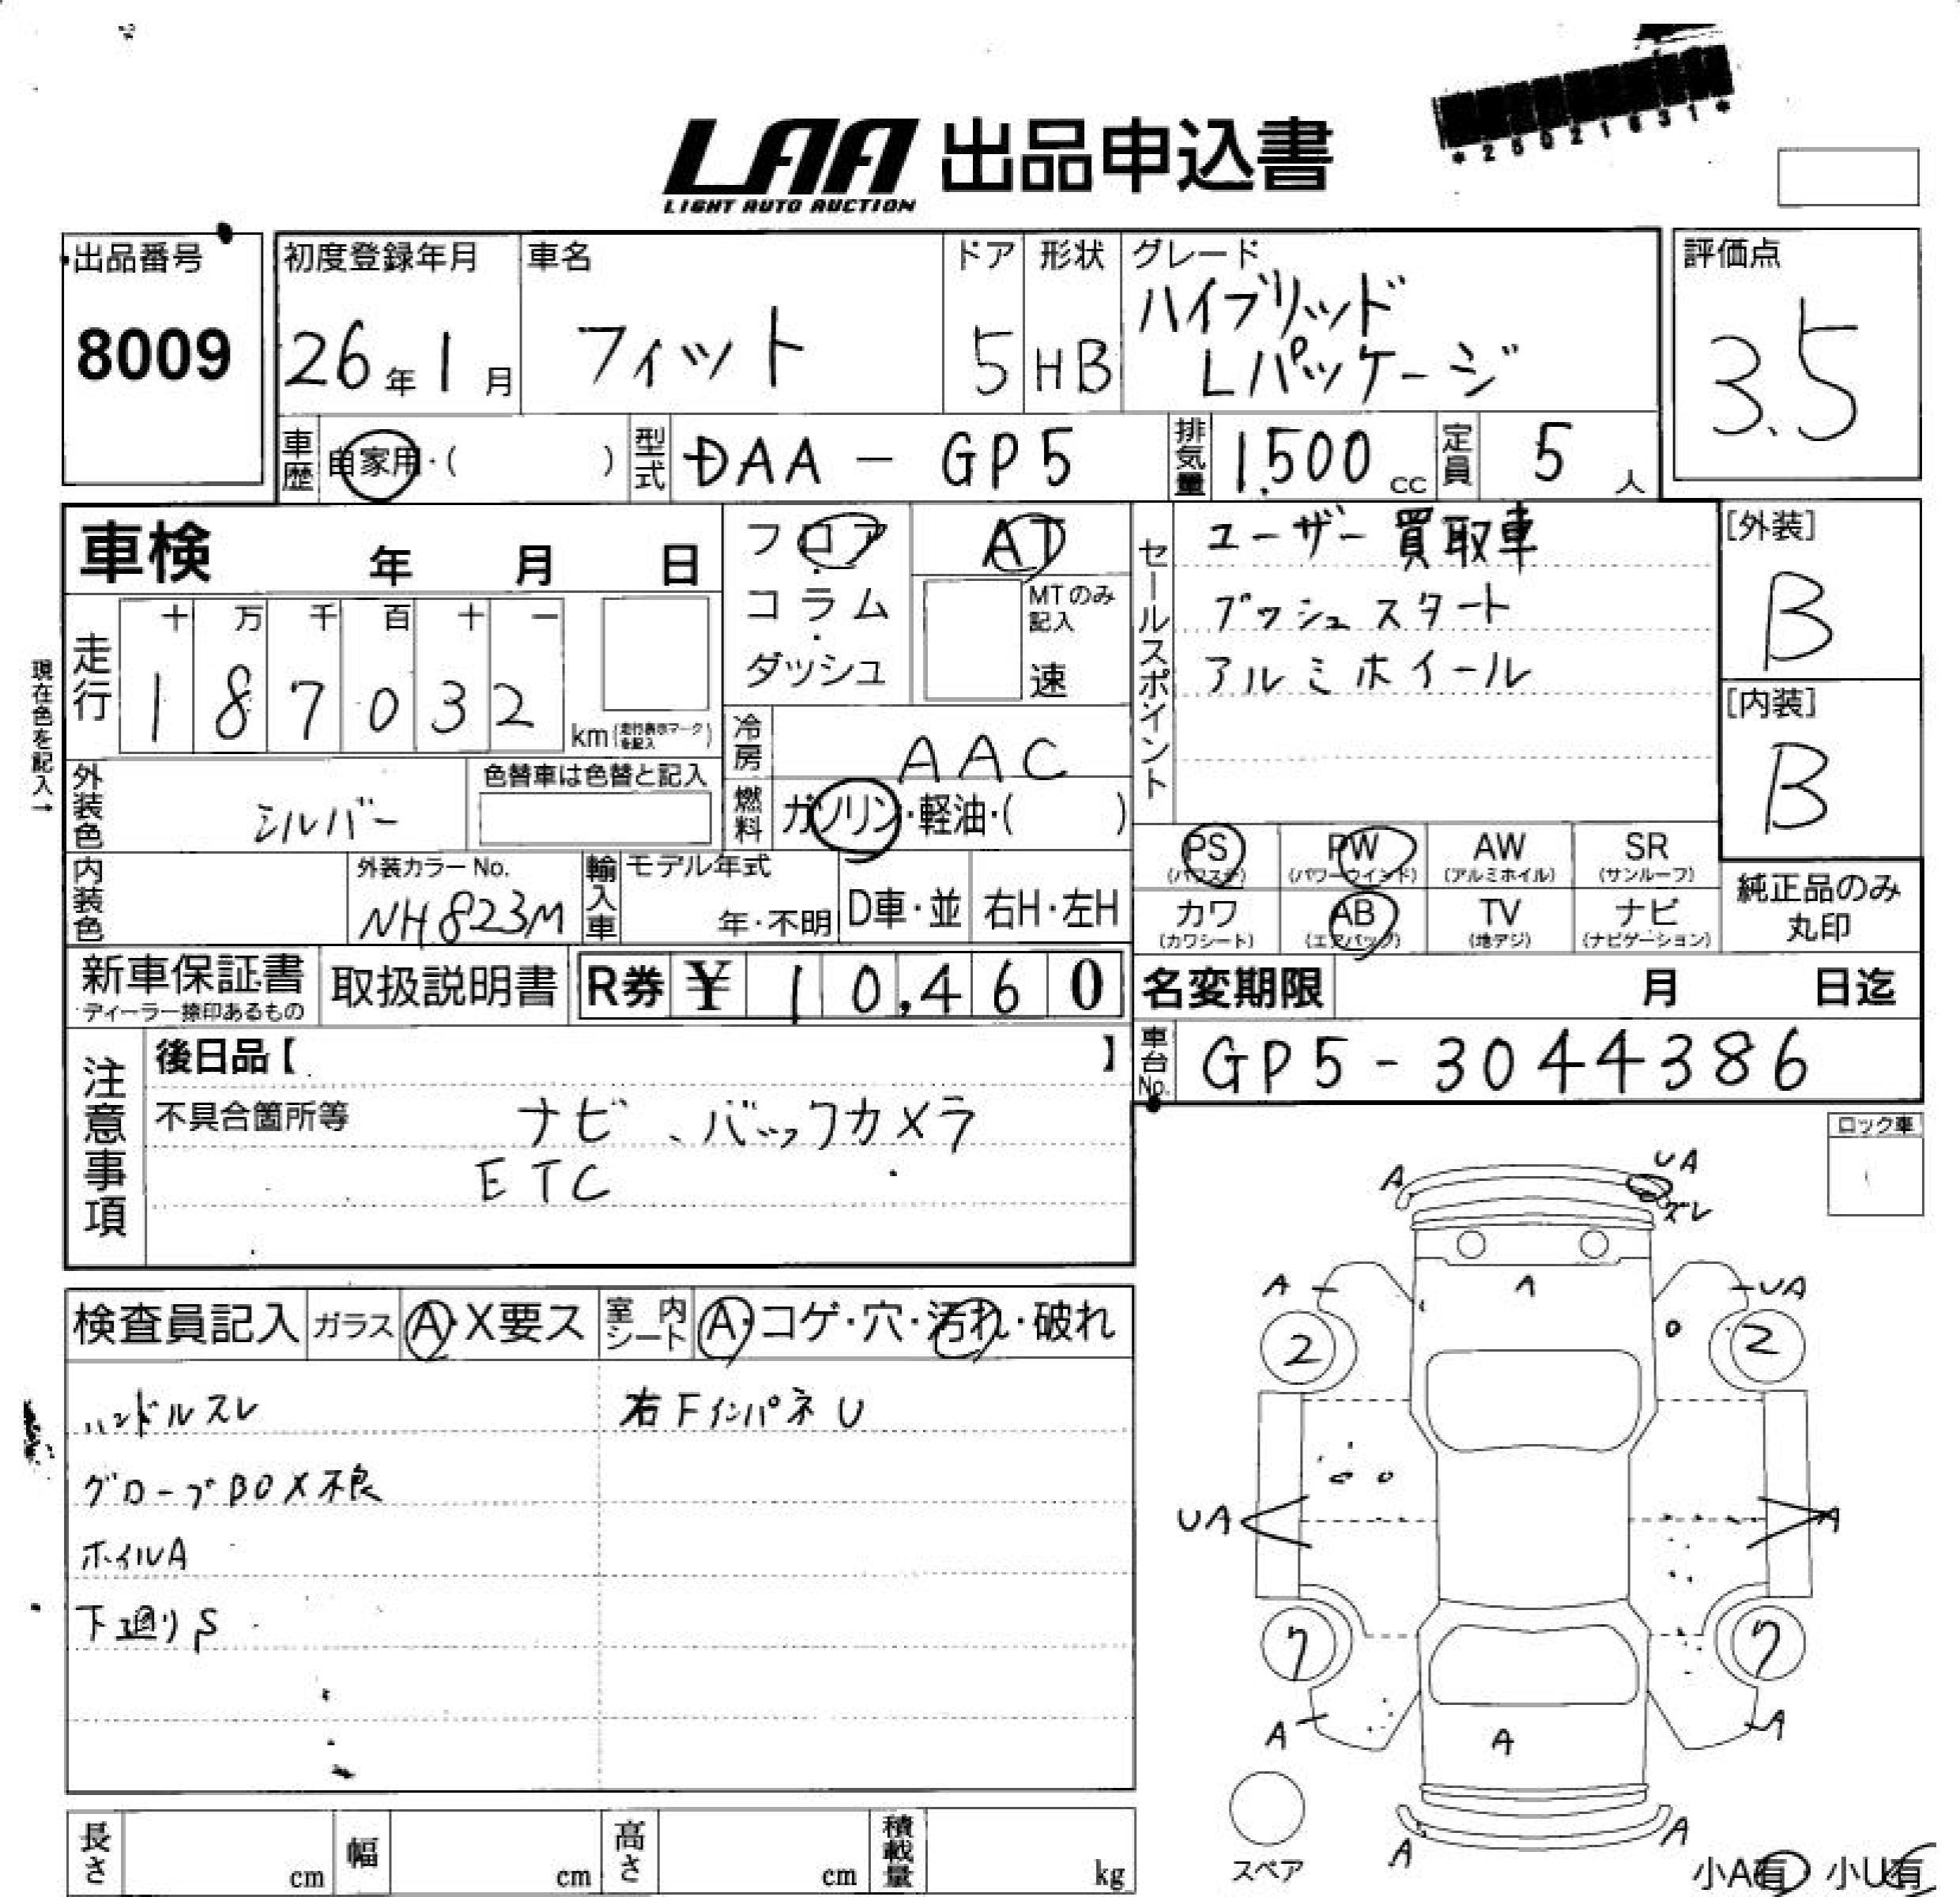 LAA 出品申込書
LIGHT AUTO AUCTION
出品番号
8009
初度登録年月
26年1月
車名
フィット
ドア
5
形状
HB
グレード
ハイブリッド
Lパッケージ
評価点
3.5
車歴 自家用・( )
型式 DAA - GP5
排気量 1,500 cc
定員 5 人
車検 年 月 日
現在色を記入→
走行
十 万 千 百 十 一
1 8 7 0 3 2
km(走行表示マークを記入)
フロア
・
コラム
・
ダッシュ
AT
MTのみ
記入
速
冷房 AAC
燃料 ガソリン・軽油・( )
外装色 シルバー
色替車は色替と記入
内装色
外装カラーNo.
NH823M
輸入車
モデル年式
年・不明
D車・並
右H・左H
セールスポイント
ユーザー買取車
プッシュスタート
アルミホイール
[外装]
B
[内装]
B
PS
(パワステ)
PW
(パワーウインド)
AW
(アルミホイル)
SR
(サンルーフ)
カワ
(カワシート)
AB
(エアバッグ)
TV
(地デジ)
ナビ
(ナビゲーション)
純正品のみ
丸印
新車保証書
ディーラー捺印あるもの
取扱説明書
R券 ¥ 10,460
名変期限 月 日迄
車台No. GP5-3044386
注意事項
後日品【 】
不具合箇所等
ナビ、バックカメラ
ETC
ロック車
検査員記入
ガラス A・X要ス
室内シート A・コゲ・穴・汚れ・破れ
ハンドルスレ
右Fインパネ U
グローブBOX不良
ホイルA
下廻りS
A
UA
ズレ
A
A
UA
2
2
UA
A
7
7
A
A
A
A
A
スペア
小A有 小U有
長さ cm
幅 cm
高さ cm
積載量 kg